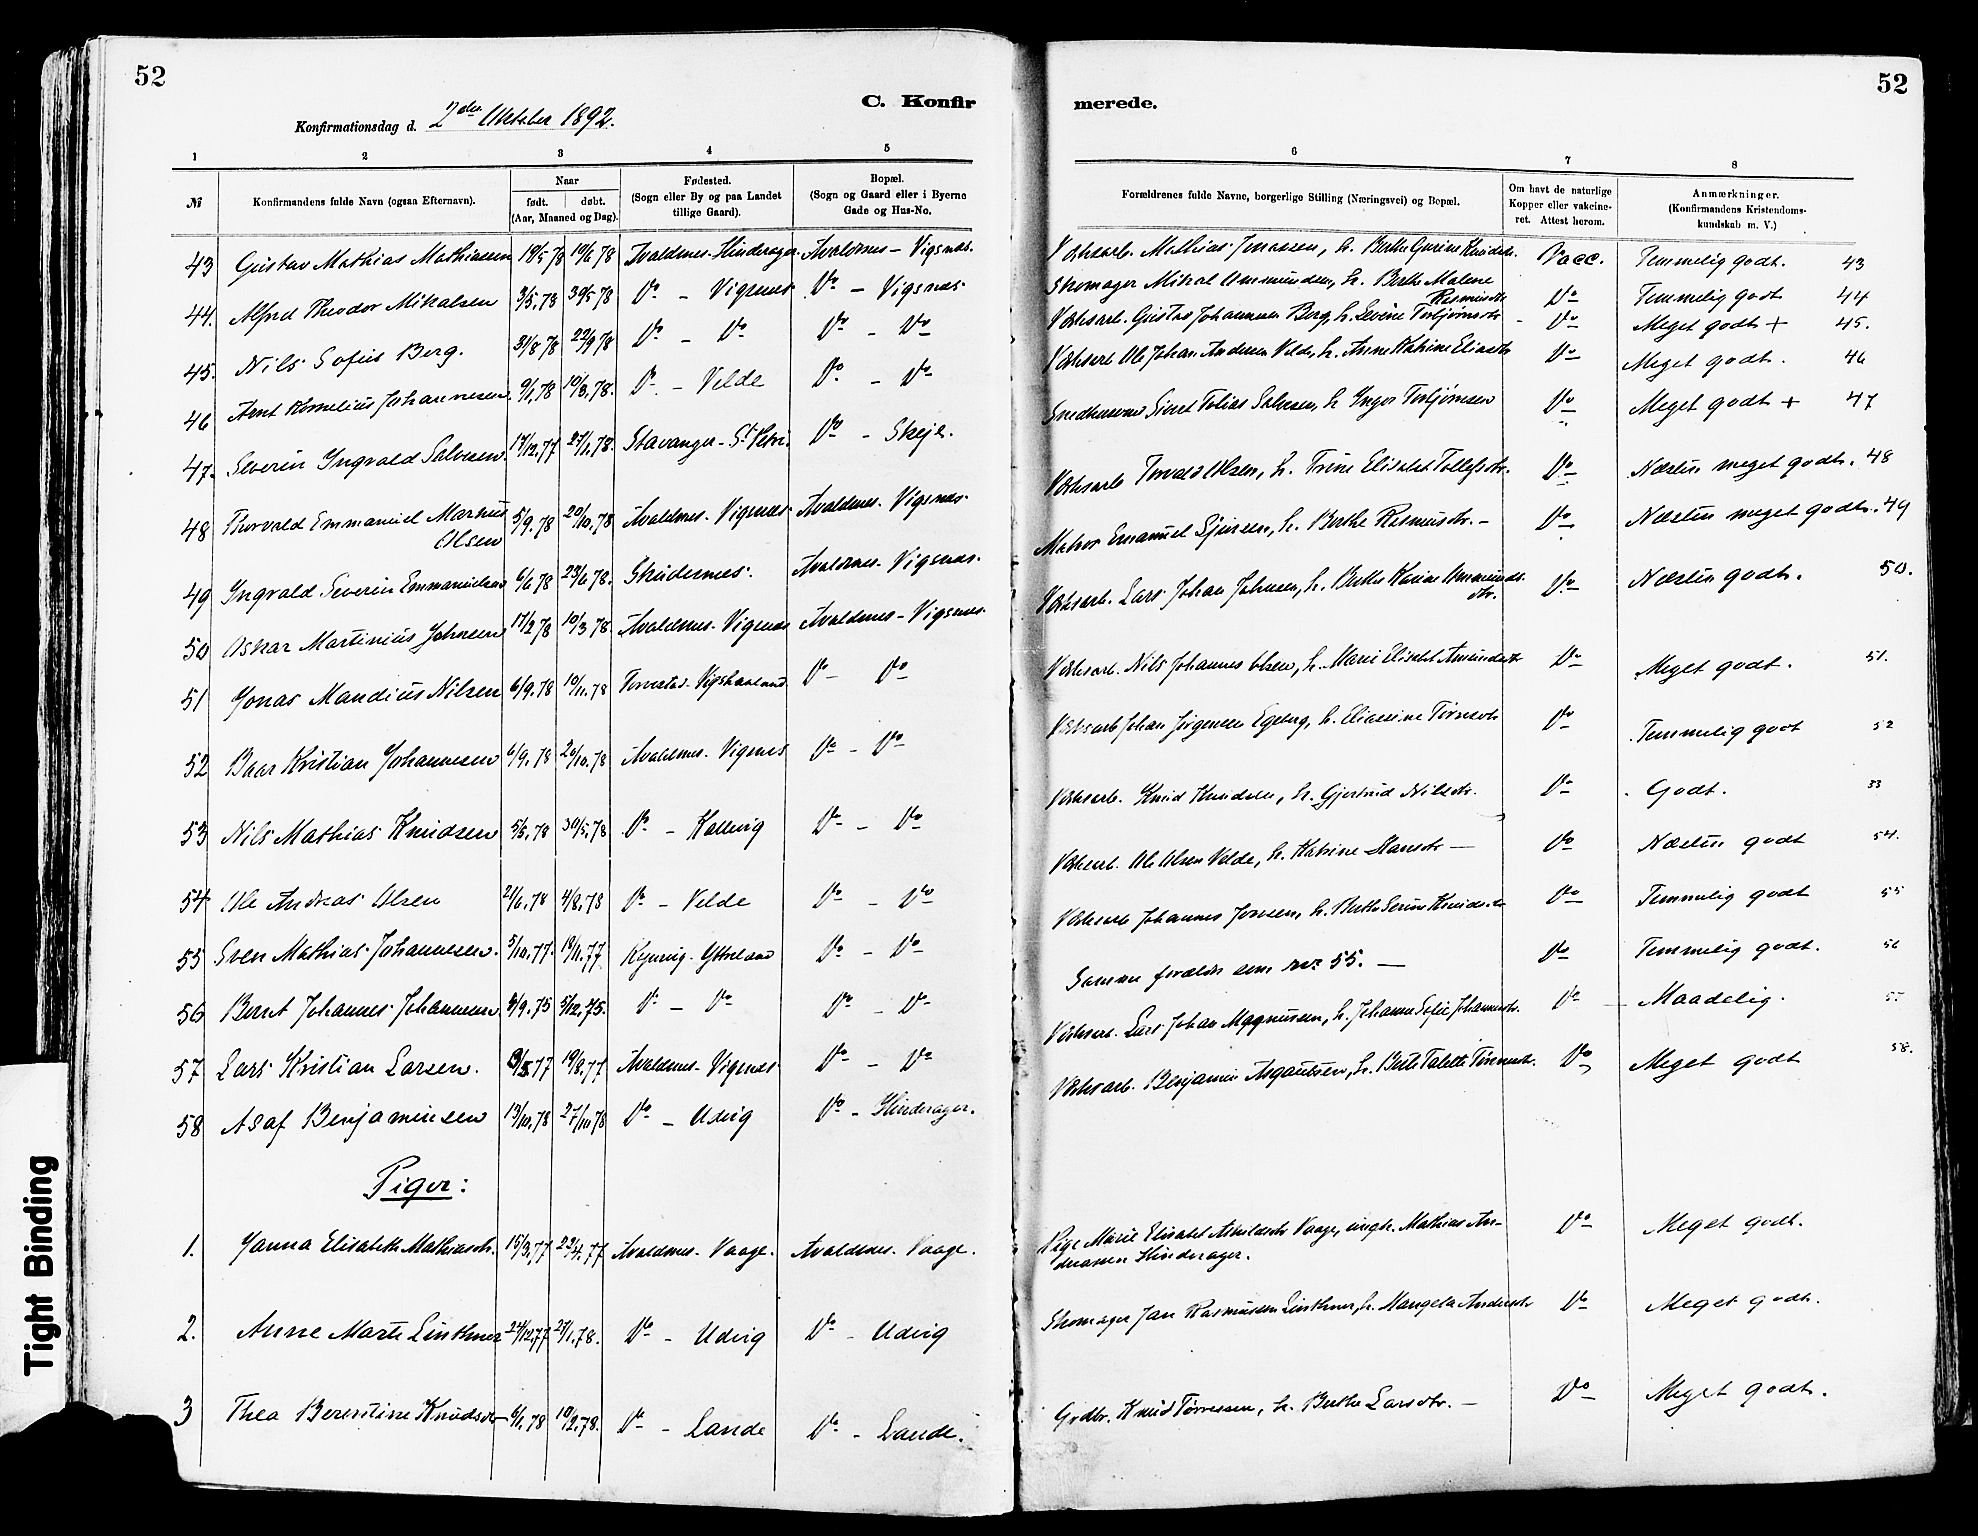 52
C. Konfir
Konfirmationsdag d. 2den Oktober 1892.
1 2 3 4 5
№ Konfirmandens fulde Navn (ogsaa Efternavn). Naar født. døbt. (Aar, Maaned og Dag). Fødested. (Sogn eller By og paa Landet tillige Gaard). Bopæl. (Sogn og Gaard eller i Byerne Gade og Hus-No.
43 Gustav Mathias Mathiassen 19/5 78 10/6 78 Avaldsnes - Hinderager Avaldsnes - Vigsnæs.
44. Alfred Theodor Mikalsen 3/5.78 30/5 78 Do - Vigsnæs Do - Vigsnæs
45. Nils Sofus Berg. 31/8 78 22/9 78 Do - Do Do - Do
46 Arnt Kornelius Johannesen. 9/1,78 10/3,78. Do - Velde Do - Do
47. Severin Yngvald Salvesen. 17/12,77 27/1,78. Stavanger - St. Petri. Do - Skeje.
48 Thorvald Emmanuel Marius Olsen 5/9.78 20/10.78 Avaldsnes. Vigsnæs Avaldsnes. Vigsnæs
49 Yngvald Severin Emmanuelsen 6/6 78 23/6 78. Skudesnes. Avaldsnes. Vigsnæs.
50 Oskar Martinius Johnsen 17/2 78 10/3 78 Avaldsnes. Vigsnæs Avaldsnes - Vigsnæs.
51 Jonas Mandius Nilsen 6/9.78 10/11.78 Torvestad. Vigshaaland Do Do
52 Baar Kristian Johannesen 6/9.78 20/10.78 Avaldsnes. Vigsnæs Do - Do
53 Nils Mathias Knudsen 5/5.78 30/5.78 Do - Kallevig Do - Do
54 Ole Andreas Olsen 21/6.78 4/8.78 Do - Velde Do - Do
55 Sven Mathias Johannesen. 5/10.77. 18/11.77 Ytreland Do - Do
56 Bernt Johannes Johannesen 8/9.75 5/12.75. Do - Do Do - Do
57 Lars Kristian Larsen. 77 19/8.77 Avaldsnes. Vigsnæs Do - Do
58 Asaf Benjaminsen 13/10.78 27/10 78 Do - Udvig Do - Hinderager.
Piger:
1. Janna Elisabeth Mathiasdtr. 15/3,77 22/4.77 Avaldsnes. Vaage. Avaldsnes. Vaage.
2. Anne Marte Linthner 24/12 77 27/1.78. Do - Udvig Do - Udvig
3 Thea Berentine Knudsdtr 6/1.78 10/2.78. Do - Lande Do - Lande.
52
merede.
6 7 8
Forældrenes fulde Navne, borgerlige Stilling (Næringsvei) og Bopæl. Om havt de naturlige Kopper eller vakcineret. Attest herom. Anmærkninger. (Konfirmandens Kristendomskundskab m. V.)
Værksarb. Mathias Jonassen, h. Berthe Gurine Knudsdtr. Vacc. Temmelig godt. 43
Skomager Mikal Ammundsen, h. Berthe Malene Rasmusdtr Do Temmelig godt 44
Værksarb. Gustav Johannesen Berg, h. Sevine Torbjørnsdtr - Do Meget godt + 45.
Værksarb Ole Johan Andersen Velde, h. Anne Katrine Eliasdtr Do Meget godt. 46
Sivert Tobias Salvesen, h. Inger Torbjørnsen Do Meget godt + 47
Værksarb Torvald Olsen, h. Trine Elisabet Tollefsdtr. Do Næsten meget godt. 48
Matros Emanuel Sjursen, h. Berthe Rasmusdtr. - Do Næsten meget godt. 49
Værksarb. Lars Johan Johnsen, h. Berthe Karine Ammundsdtr. Do Næsten godt. 50.
Værksarb. Nils Johannes Olsen, h. Marie Elisabet Amundsdtr Do Meget godt. 51.
Værksarb Johan Jørgensen Egeberg, h. Eliassine Tørresdtr Do Temmelig godt 52
Værksarb. Knud Knudsen, h. Gjertrud Nilsdtr. Do Godt. 53
Værksarb. Ole Olsen Velde, h. Katrine Hansdtr - Do Næsten godt 54.
Værksarb Johannes h. Berthe Serine Knudsdtr Do Temmelig godt 55
Samme forældre som nr. 55. - Do Temmelig godt. 56
Værksarb. Lars Johan Magnussen, h. Johanne Sofie Johannesdtr. Do Maadelig. 57
Værksarb. Benjamin Asgautsen, h. Berte Talette Do Meget godt 58.
Pige Marie Elisabet Askildsdtr Vaage, ungk. Mathias An-
dreassen Hinderager. Do Meget godt.
Skomager Jan Rasmussen Linthner, h. Mangela Andersdtr Do Meget godt.
Grdbr. Knud Tørressen, h. Berthe Larsdtr. - Do Meget godt.
Tight Binding